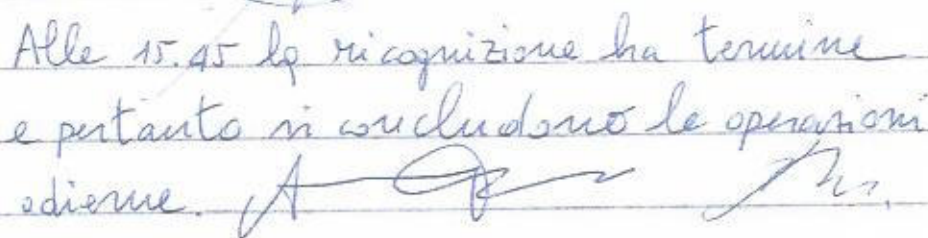 Alle 15.45 la ricognizione ha termine
e pertanto si concludono le operazioni
odierne.